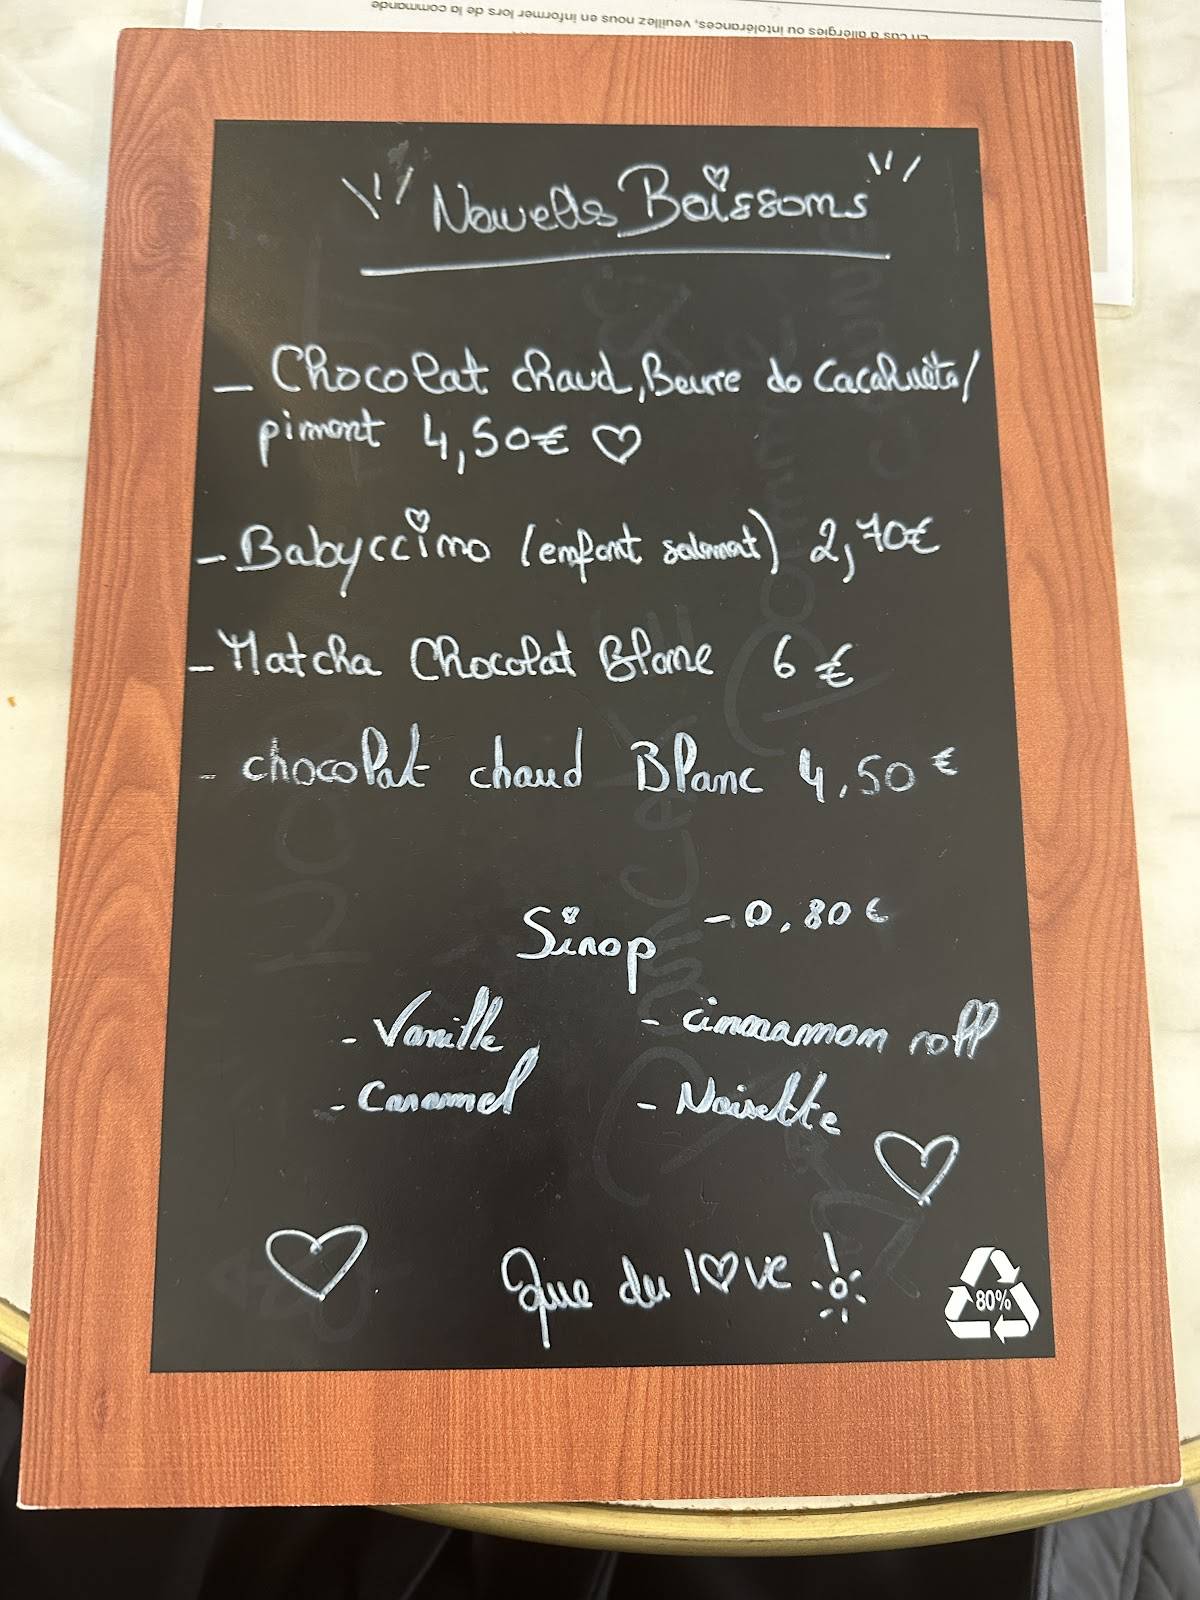 En cas d'allergies ou intolérances, veuillez nous en informer lors de la commande
Nouvelles Boissons
- Chocolat chaud, Beurre de Cacahuète/
piment 4,50€ ♡
- Babyccino (enfant seulement) 2,70€
- Matcha Chocolat Blanc 6 €
- chocolat chaud Blanc 4,50 €
Sirop - 0,80 €
- Vanille - cinnamon roll
- Caramel - Noisette
Que du love !
80%